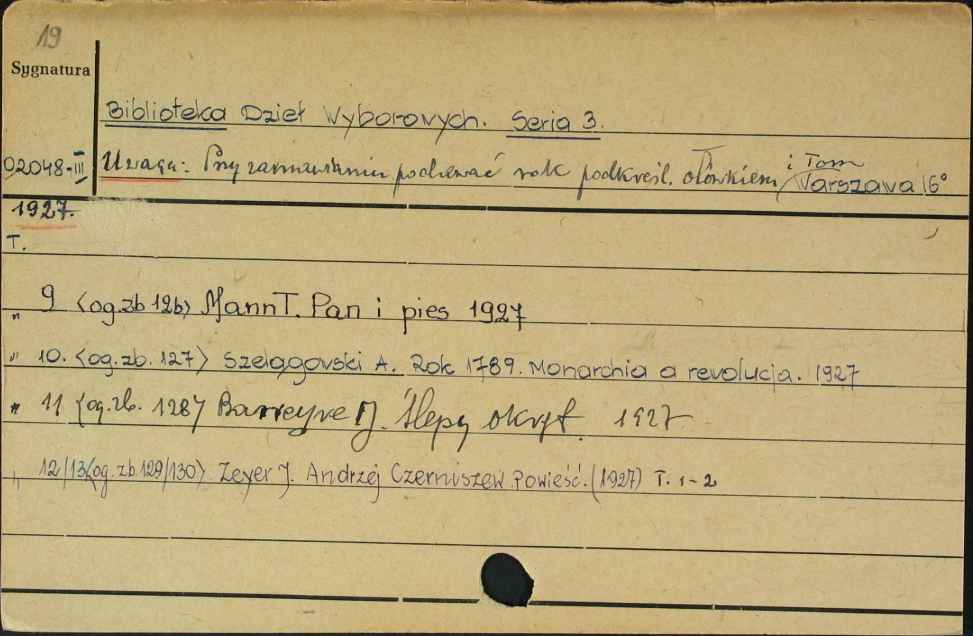 19
Sygnatura
Biblioteka Dzieł Wyborowych. Seria 3.
02048-III
Uwaga: Przy zamawianiu podawać rok podkreśl. ołówkiem i Tom
Warszawa 16°
1927.
T.
" 9 <og.zb 126> Mann T. Pan i pies 1927
" 10. <og.zb. 127> Szelągowski A. Rok 1789. Monarchia a revolucja. 1927
" 11 <og.zb. 128> Barreyre J. Ślepy okręt. 1927
" 12/13 <og.zb 129/130> Zeyer J. Andrzej Czerniszew Powieść. (1927) T. 1-2